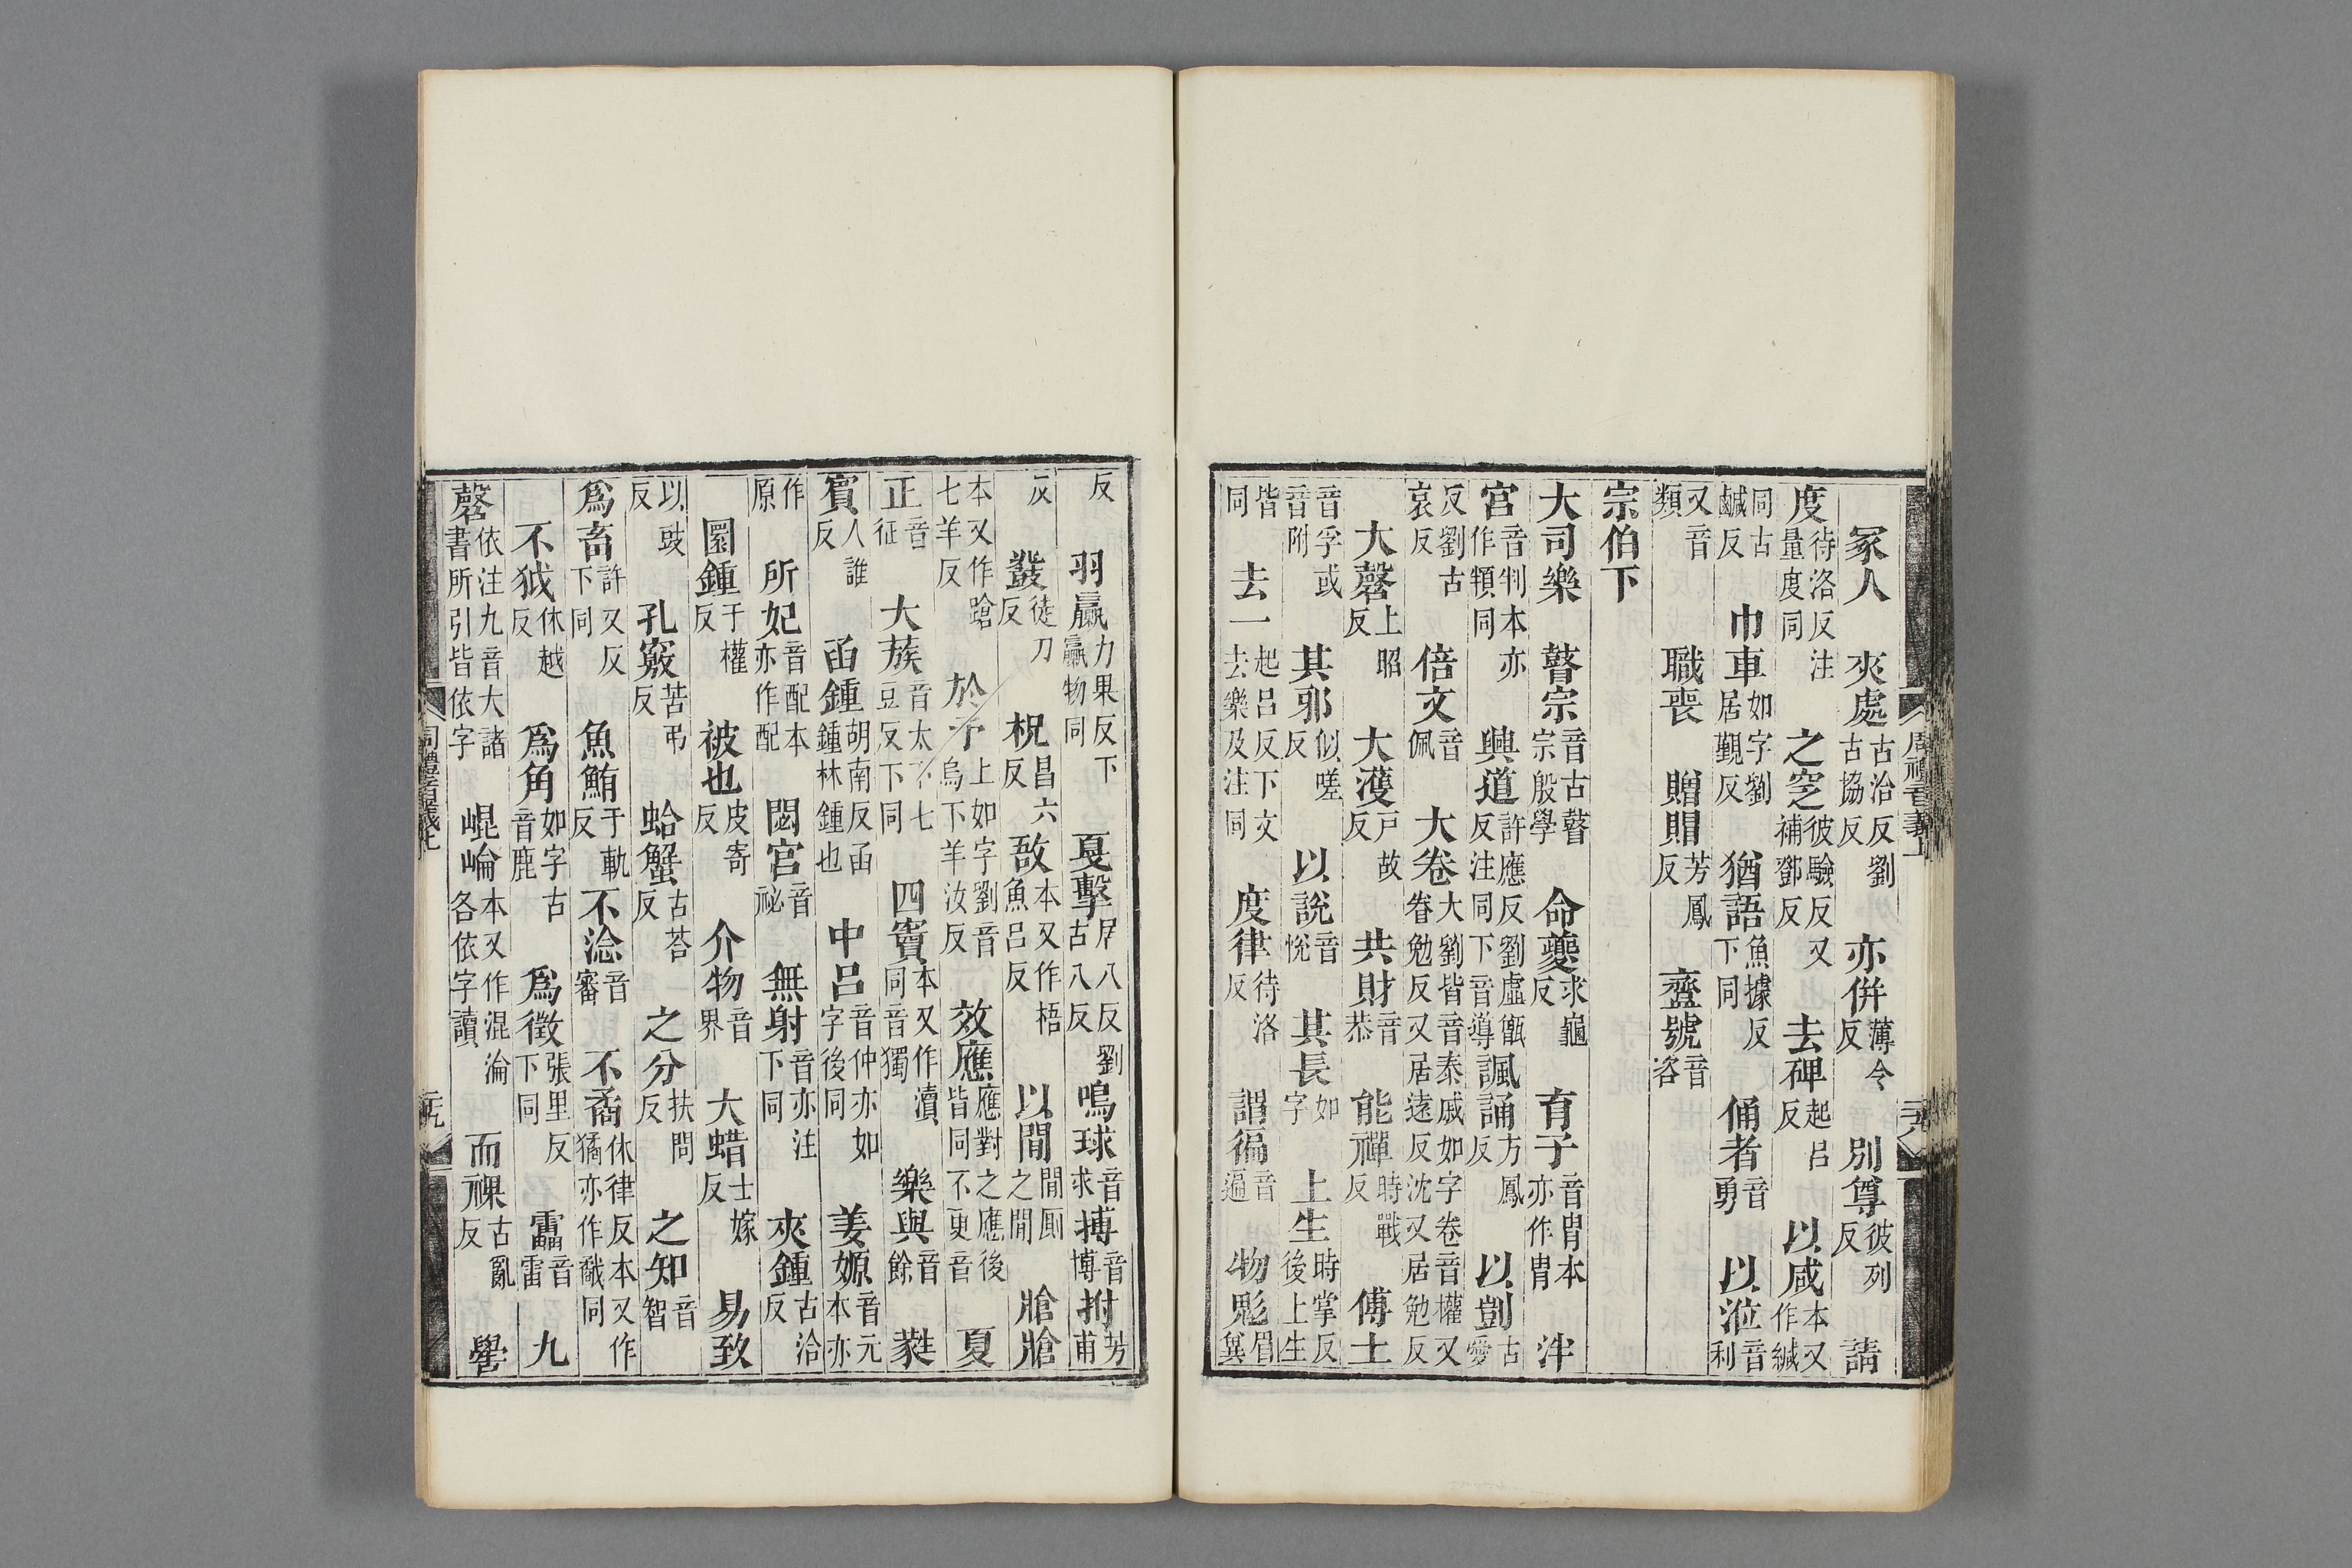 周禮音義上
冢人　夾處古洽反劉古協反　亦併薄令反　別尊彼列反　請
度待洛反注量度同　之窆彼驗反又補鄧反　去碑起呂反　以咸本又作緘
同古鹹反　巾車如字劉居覲反　猶語魚據反下同　俑者音勇　以涖音利
又音類　職喪　贈賵芳鳳反　齍號音咨
宗伯下
大司樂　瞽宗音古瞽宗殷學　命夔求龜反　育子音胄本亦作胄　泮
宮音判本亦作頖同　興道許應反劉虛甑反注同下音導　諷誦方鳳反　以剴古愛
反劉古哀反　倍文音佩　大卷大劉皆音泰戚如字卷音權又眷勉反又居遠反沈又居勉反
大磬上昭反　大濩戸故反　共財音恭　能禪時戰反　傅土
音孚或音附　其邪似嗟反　以說音悅　其長如字　上生時掌反後上生
皆同　去一起呂反下文去樂及注同　度律待洛反　謂徧音遍　物鬽眉兾
反　羽臝力果反下臝物同　戛擊居八反劉古八反　鳴球音求　搏音博　拊芳甫
反　鼗徒刀反　柷昌六反　敔本又作梧魚呂反　以閒閒厠之閒　牄牄
本又作蹌七羊反　於予上如字劉音烏下羊汝反　效應應對之應後皆同不更音　夏
正音征　大蔟音太下七豆反下同　四竇本又作瀆同音獨　樂與音餘　蕤
賓人誰反　函鍾胡南反函鍾林鍾也　中呂音仲亦如字後同　姜嫄音元本亦
作原　所妃音配本亦作配　閟宮音祕　無射音亦注下同　夾鍾古洽反
圜鍾于權反　被也皮寄反　介物音界　大蜡士嫁反　易致
以豉反　孔竅苦弔反　蛤蟹古荅反　之分扶問反　之知音智
爲畜許又反下同　魚鮪于軌反　不淰音審　不矞休律反本又作獝亦作䎀同
不狘休越反　爲角如字古音鹿　爲徵張里反下同　靁音雷　九
磬依注九音大諸書所引皆依字　崐崘本又作混淪各依字讀　而祼古亂反　嚳